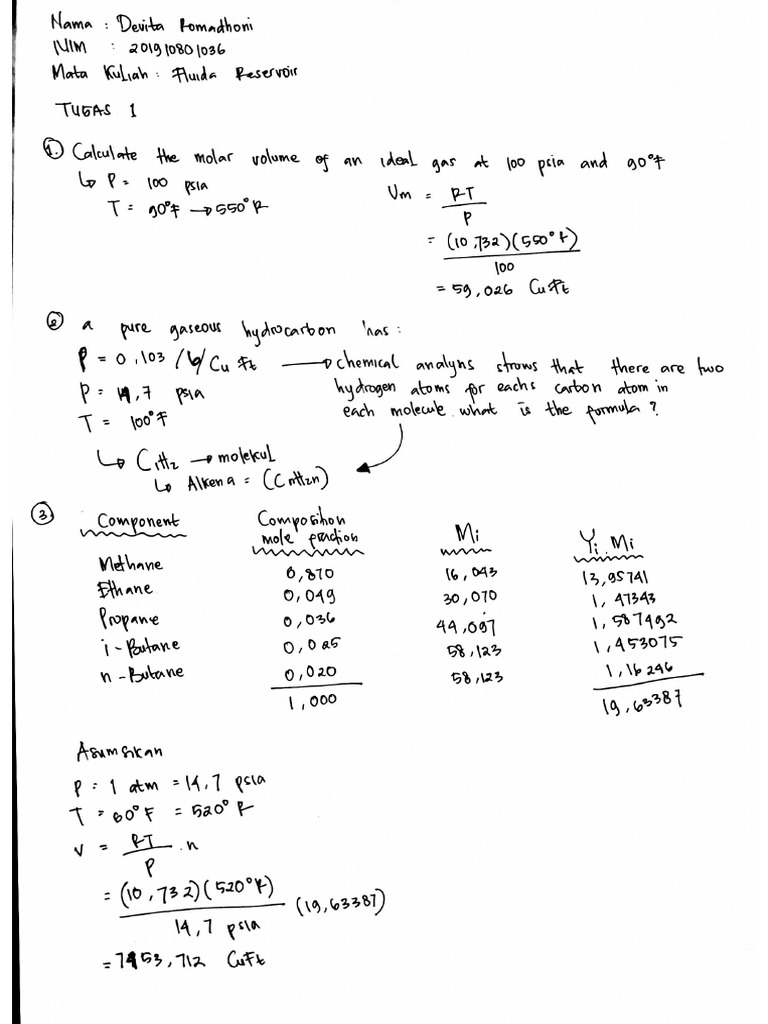 Nama : Devita Romadhoni
NIM : 201910801036
Mata Kuliah : Fluida Reservoir
TUGAS 1
1. Calculate the molar volume of an ideal gas at 100 psia and 90°F
↳ P = 100 psia
T = 90°F → 550°R
Vm = RT
P
= (10,732)(550°R)
100
= 59,026 Cu Ft
2 a pure gaseous hydrocarbon has :
ρ = 0,103 lb/Cu Ft → chemical analyns strows that there are two
P = 14,7 psia hydrogen atoms for eachs carbon atom in
T = 100°F each molecule. what is the formula ?
↳ C1H2 → molekul
↳ Alkena = (CnH2n)
3. Component Composition mole fraction Mi Yi Mi
Methane 0,870 16,043 13,95741
Ethane 0,049 30,070 1,47343
Propane 0,036 44,097 1,587492
i - Butane 0,025 58,123 1,453075
n - Butane 0,020 58,123 1,16246
1,000 19,63387
Asumsikan
P = 1 atm = 14,7 psia
T = 60°F = 520°R
V = RT . n
P
= (10,732)(520°R) (19,63387)
14,7 psia
= 7453,712 CuFt